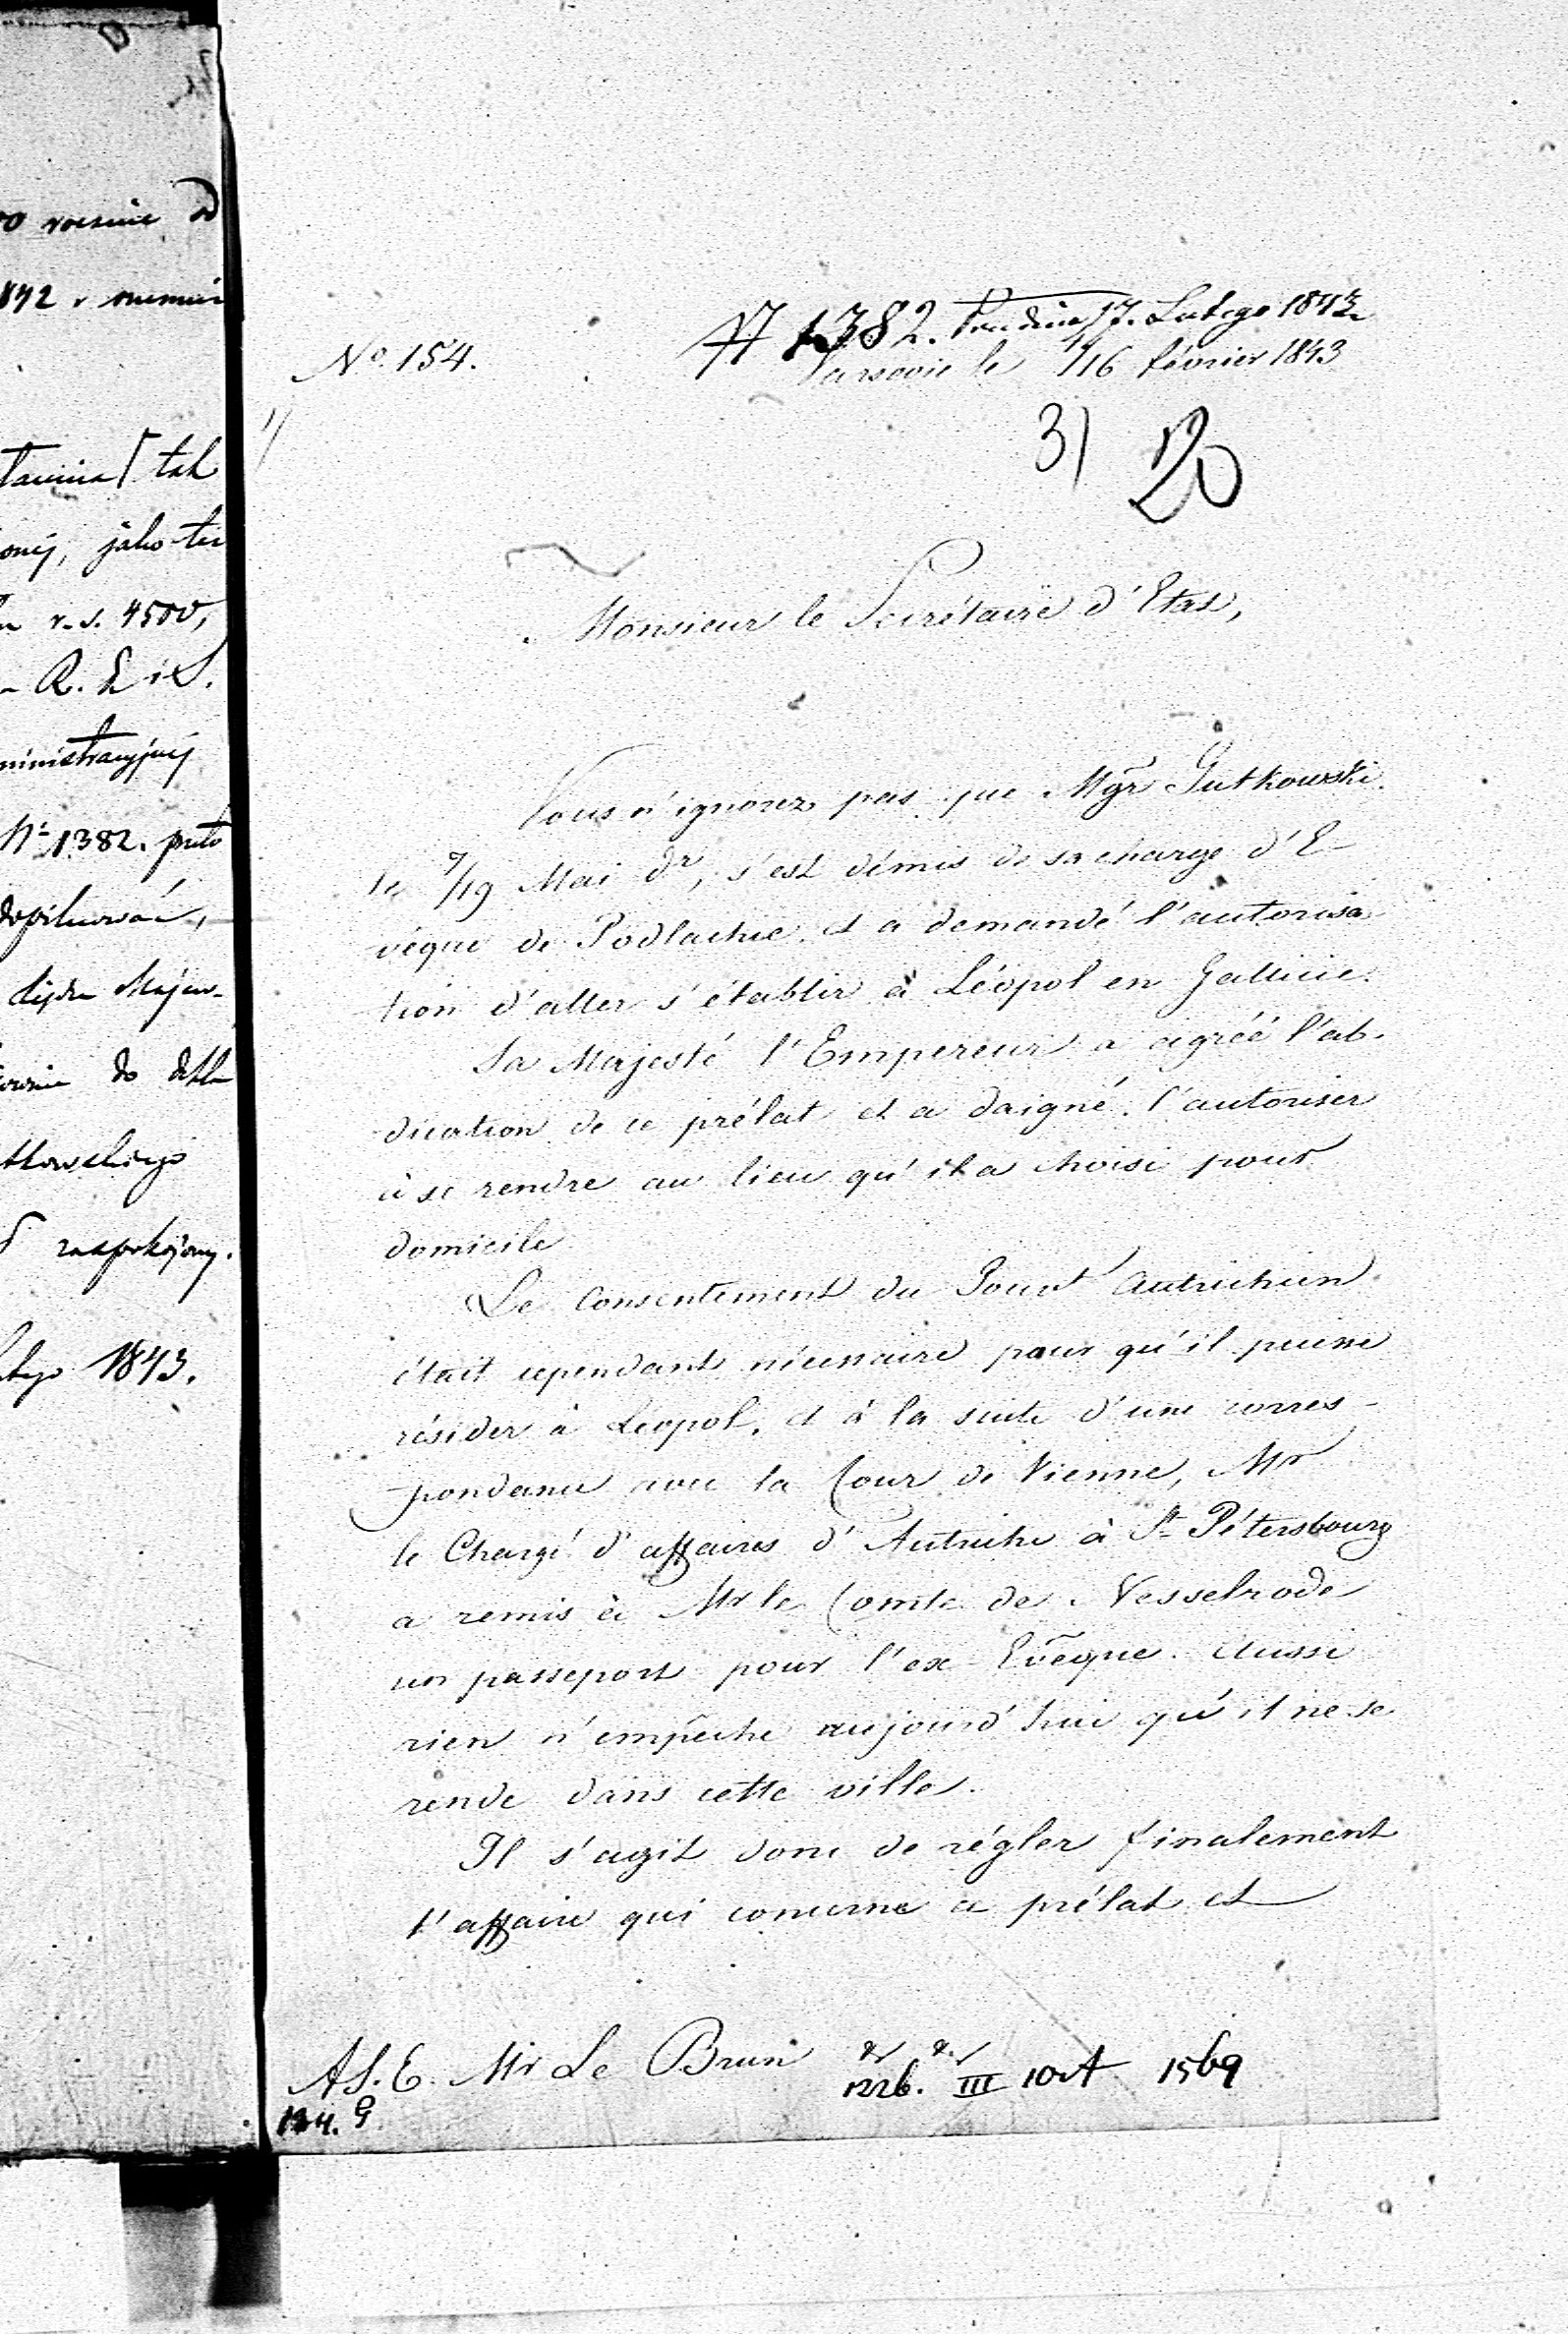 o rocznie od
842
tak
jako też
r. s. 4500,
R. L. i S.
ministracyjnej
№ 1382.
dopilnować,
do
tkowskiego
zaspokojony.
1843.
No. 154.
№ 1382. 17. Lutego 1843
Varsovie le 4/16 février 1843
3)
Monsieur le Secrétaire d'Etat,
Vous n'ignorez pas que Mgr Gutkowski
le 7/19 Mai dr, s'est démis de sa charge d'E-
vêque de Podlachie et a demandé l'autorisa
tion d'aller s'établir à Léopol en Gallicie.
Sa Majesté l'Empereur a agréé l'ab-
dication de ce prélat et a daigné l'autoriser
à se rendre au lieu qu'il a choisi pour
domicile
Le Consentement du Gouvt Autrichien
était cependant nécessaire pour qu'il puisse
résider à Léopol, et à la suite d'une corres-
pondance avec la Cour de Vienne, Mr
le Chargé d'affaires d'Autriche à St Pétersbourg
a remis à Mr le Comte de Nesselrode
un passeport pour l'ex-Evêque. Aussi
rien n'empêche aujourd'hui qu'il ne se
rende dans cette ville.
Il s'agit donc de régler finalement
l'affaire qui concerne ce prélat et
A S. E. Mr Le Brun
1226. III 10 A 1569
134. G